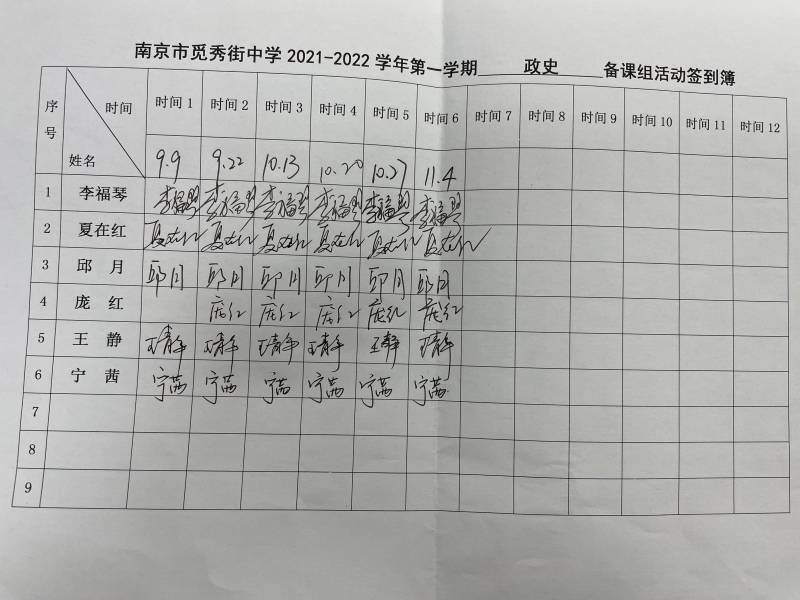 南京市觅秀街中学 2021-2022 学年第一学期 政史 备课组活动签到簿
序号 时间 姓名 时间 1 时间 2 时间 3 时间 4 时间 5 时间 6 时间 7 时间 8 时间 9 时间 10 时间 11 时间 12
9.9 9.22 10.13 10.20 10.27 11.4
1 李福琴 李福琴 李福琴 李福琴 李福琴 李福琴 李福琴
2 夏在红 夏在红 夏在红 夏在红 夏在红 夏在红 夏在红
3 邱 月 邱月 邱月 邱月 邱月 邱月 邱月
4 庞 红 庞红 庞红 庞红 庞红 庞红
5 王 静 王静 王静 王静 王静 王静 王静
6 宁 茜 宁茜 宁茜 宁茜 宁茜 宁茜 宁茜
7
8
9